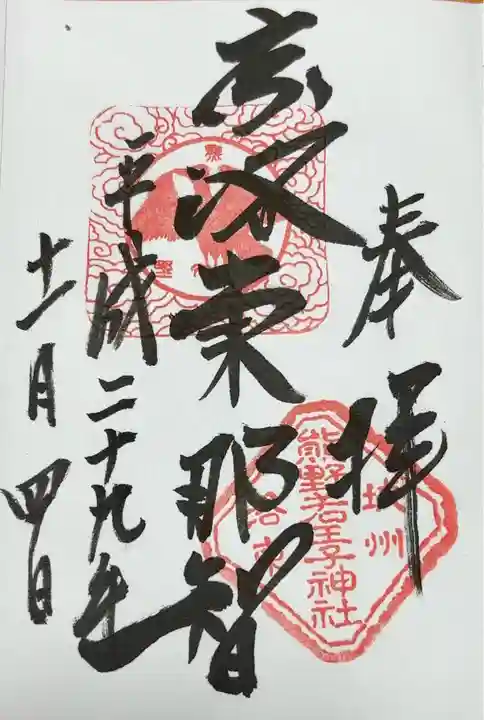 奉拝
京洛東那智
平成二十九年
十一月四日
城州
熊野若王子神社
洛東
熊